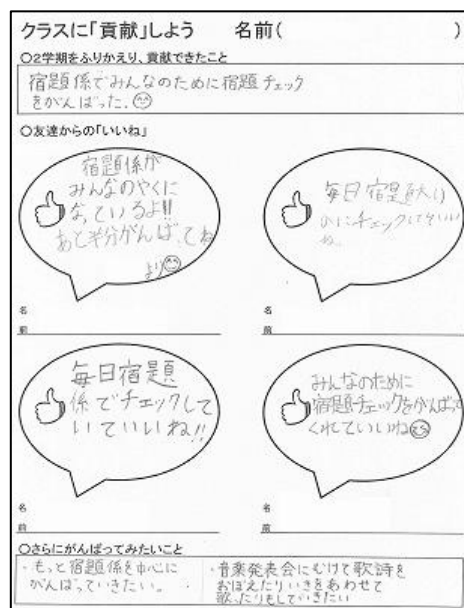 クラスに「貢献」しよう　名前(　　　)
○2学期をふりかえり、貢献できたこと
宿題係でみんなのために宿題チェック
をがんばった.
○友達からの「いいね」
宿題係が
みんなのやくに
なっているよ!!
あと半分がんばってね
より
名
前
毎日宿題
のにチェックして
ね。
名
前
毎日宿題
係でチェックして
いていいね!!
名
前
みんなのために
宿題チェックをがんばって
くれていいね
名
前
○さらにがんばってみたいこと
・もっと宿題係を中心に
がんばっていきたい。
・音楽発表会にむけて歌詩を
おぼえたりいきをあわせて
歌ったりもしていきたい